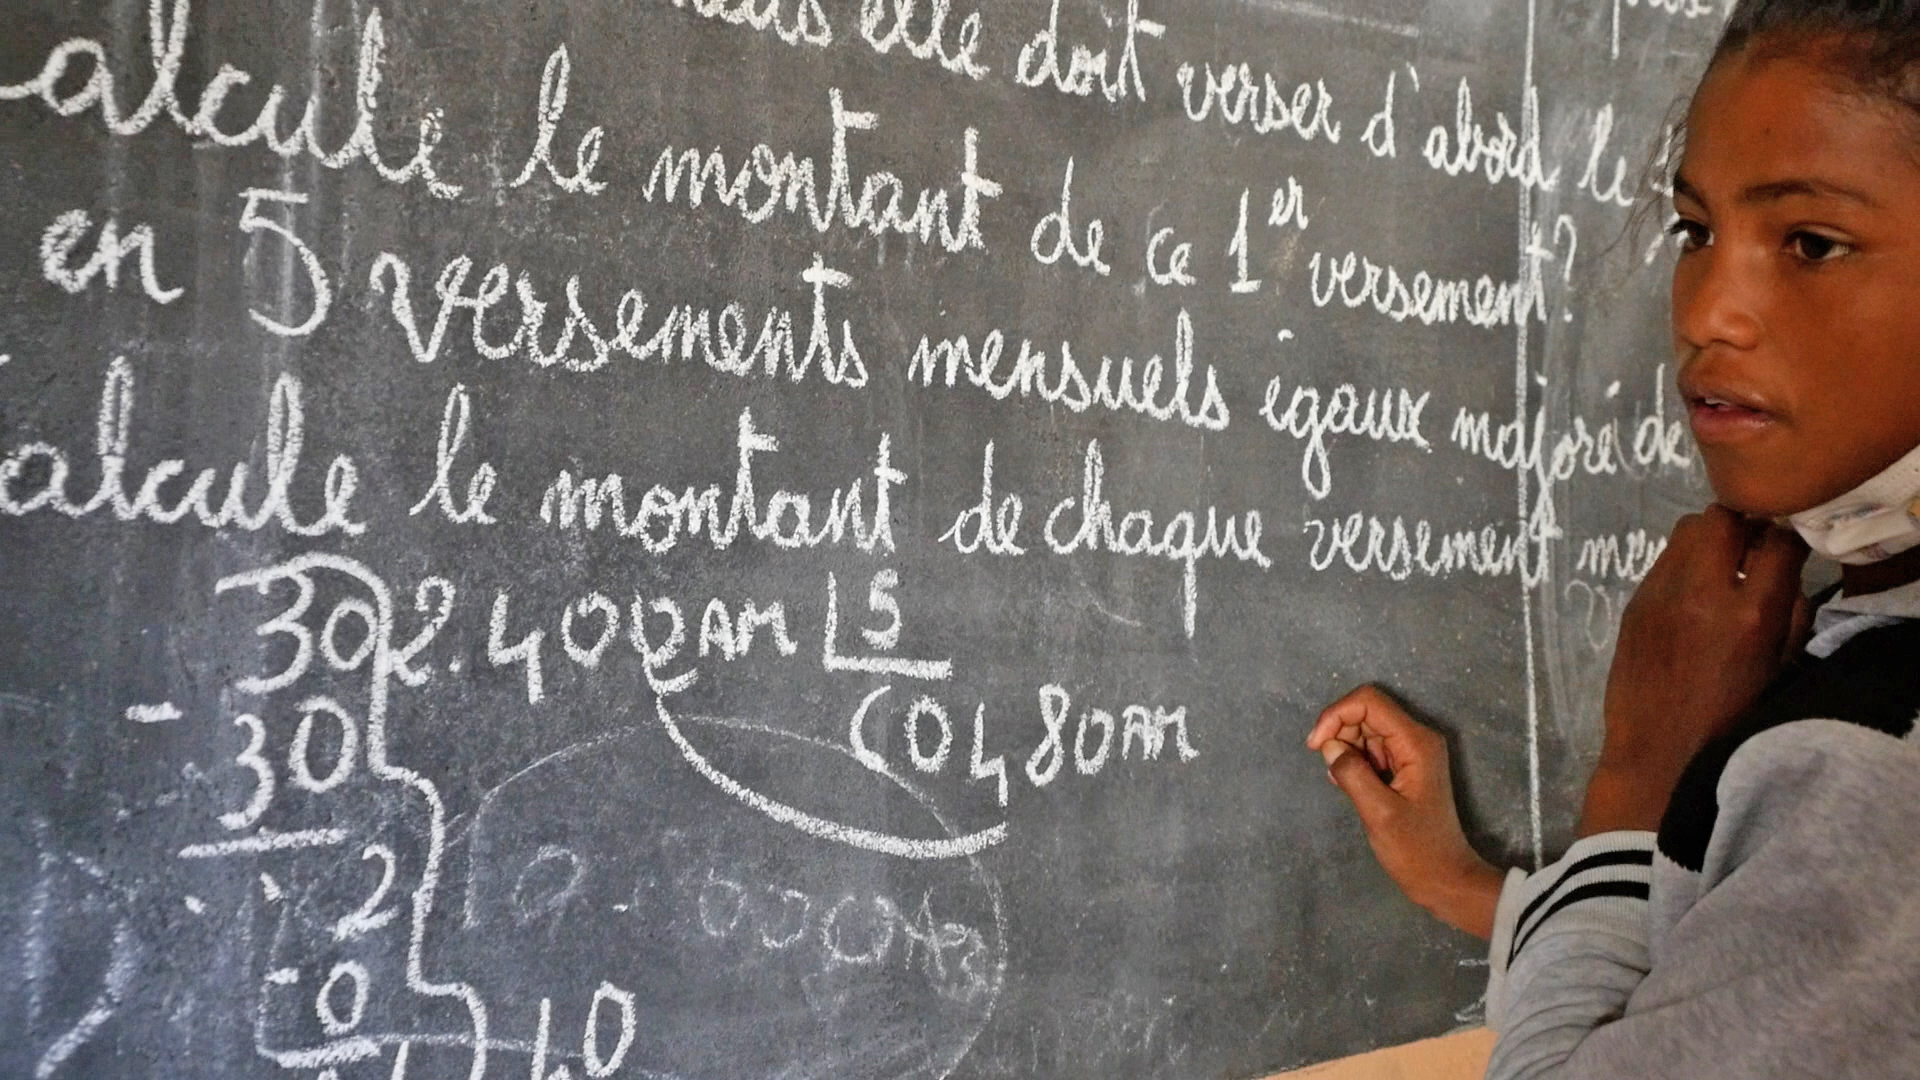 elle doit verser d'abord le
alcule le montant de ce 1er versement?
en 5 versements mensuels égaux majoré de
alcule le montant de chaque versement men
302.400AM 5
60480AM
- 30
2
0.000Ar
- 0
40